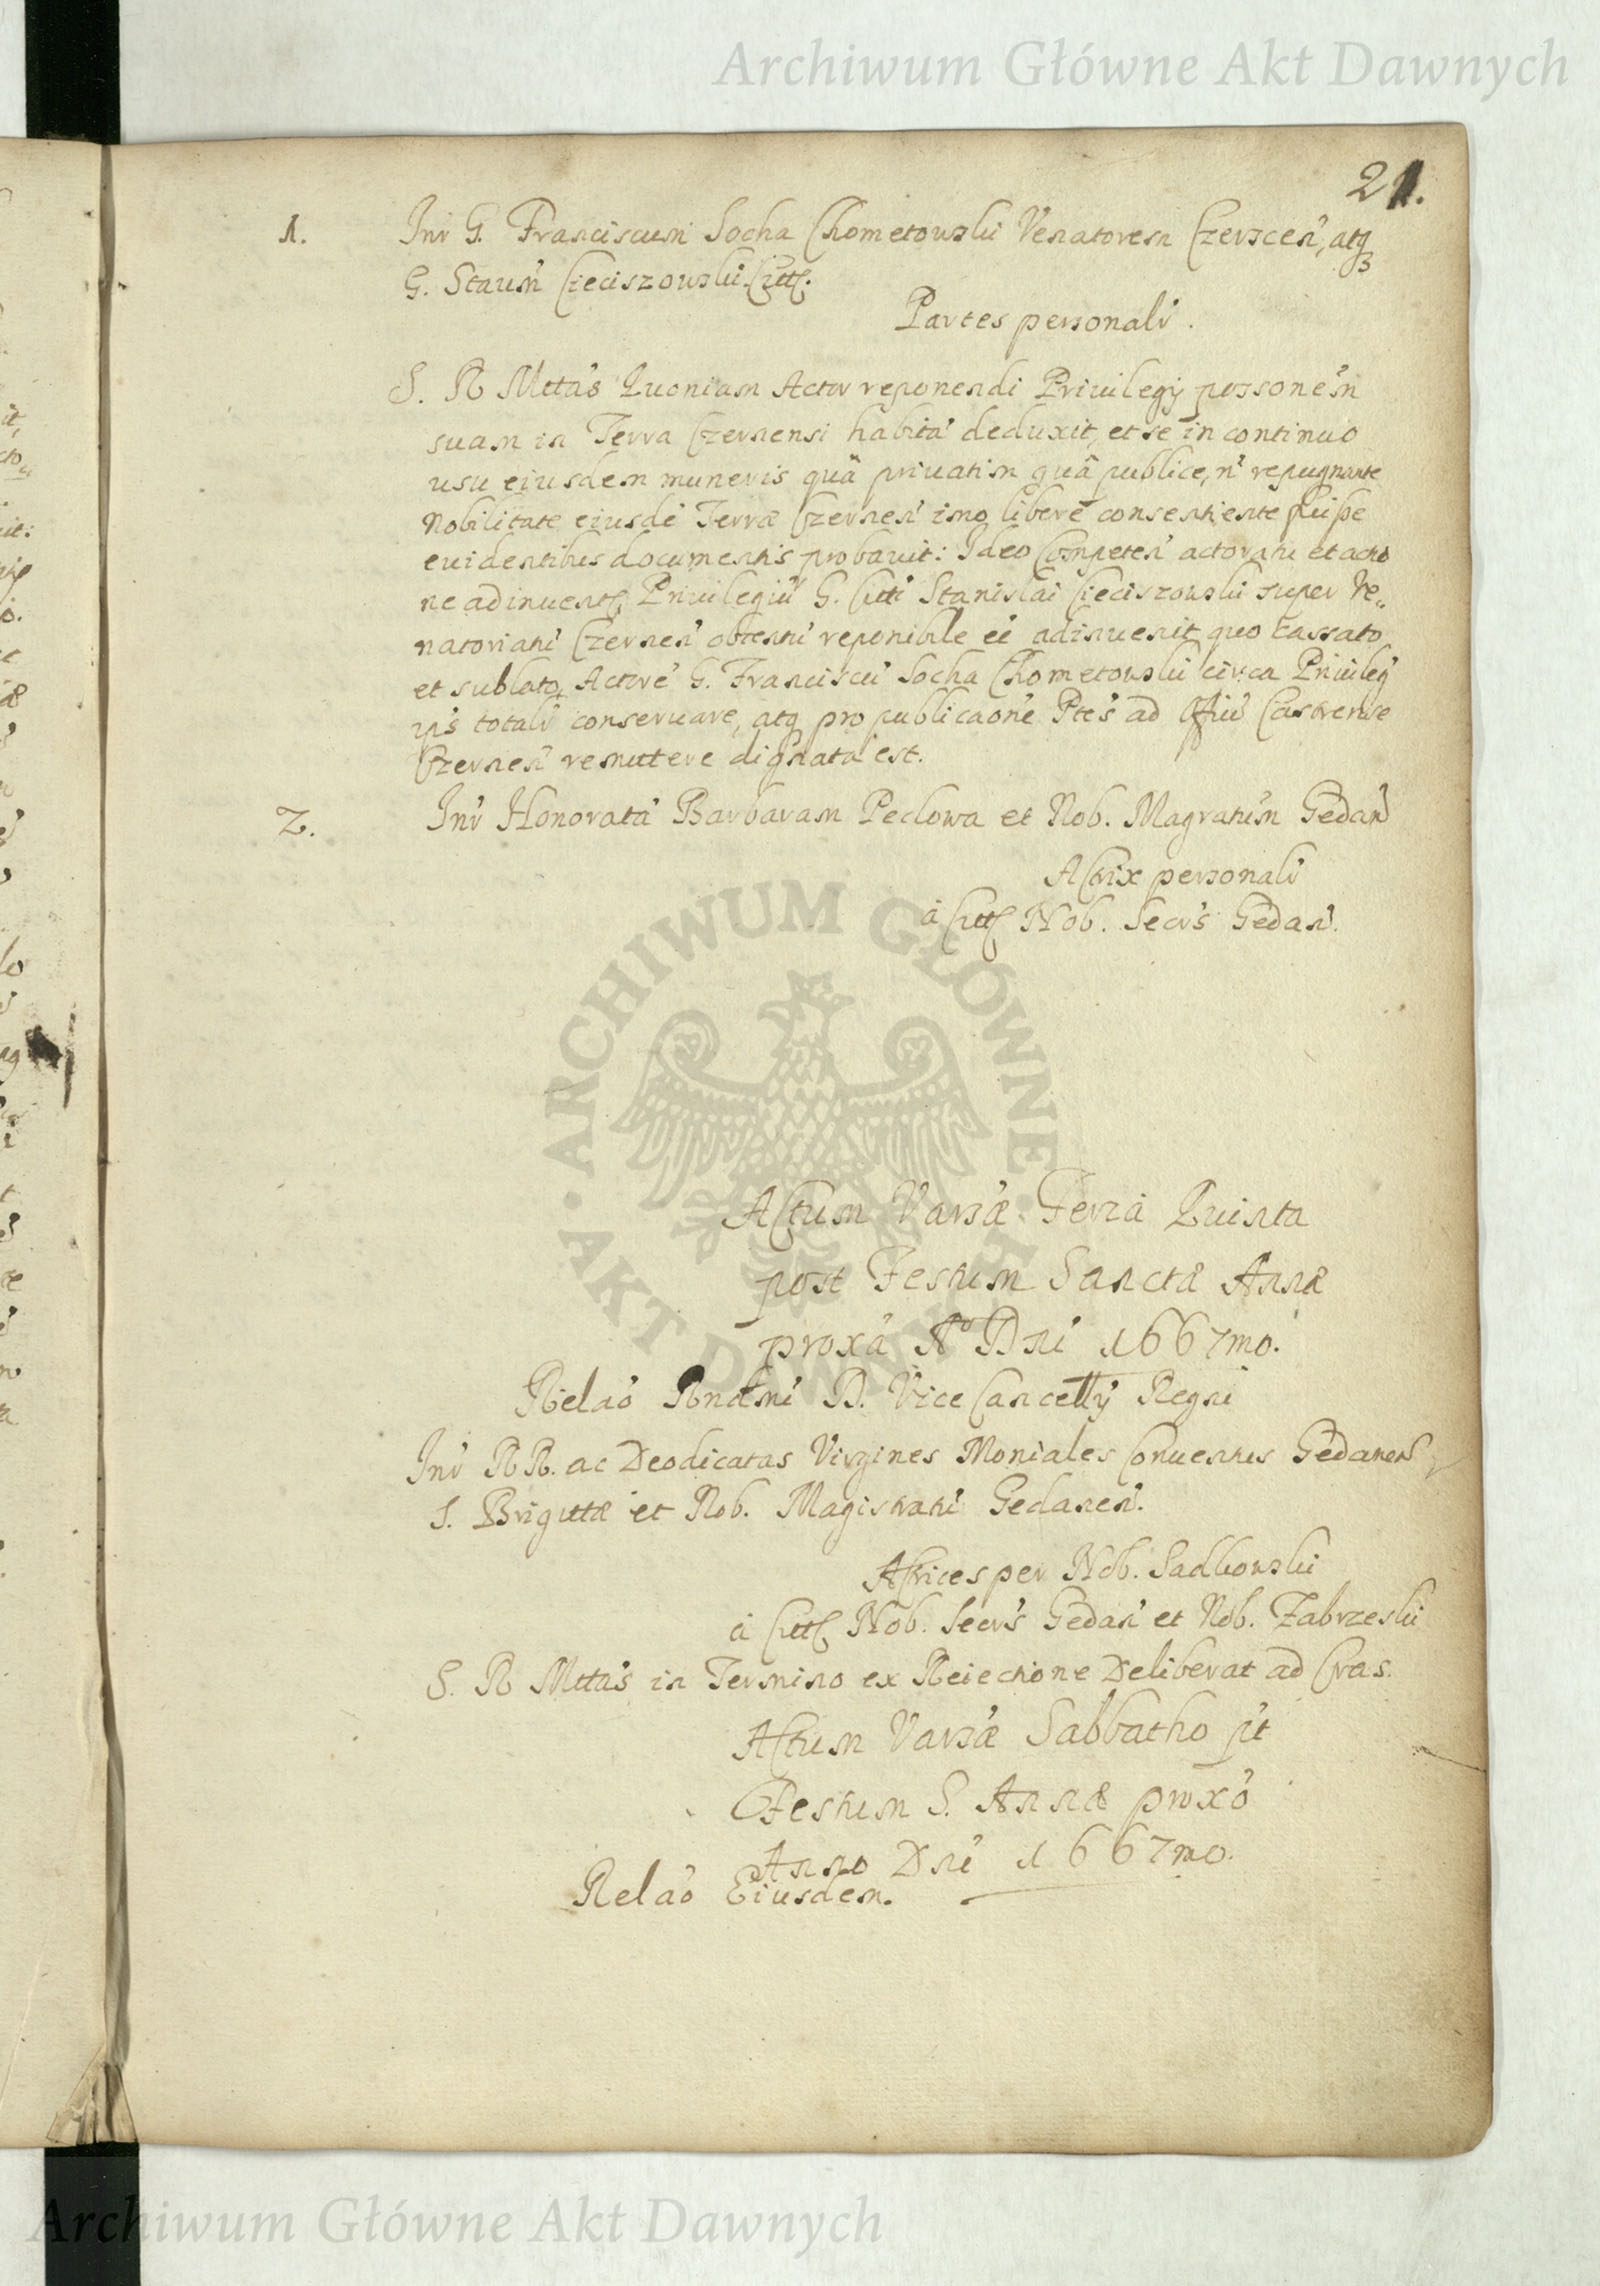 Archiwum Główne Akt Dawnych
21.
1. Inr G. Franciscum Socha Chometowski Venatorem Czerscen, atq
G. Staum Cieciszowski Citt.
Partes personalr.
S. R Mttas Quoniam Actor reponendi Privilegij possionem
suam in Terra Czernensi habita deduxit, et se in continuo
usu eiusdem muneris quâ privatim quâ publice, n repugnante
Nobilitate eiusde Terræ Czernen imo libere consentiente
evidentibus documentis probavit: Ideo Competen actoratu et actio
ne adinvent Privilegiu G. Citti Stanislai Cieciszowski super Ve„
natoriatu Czernen obtentu reponibile ee adinvenit, quo cassato
et sublato, Actore G. Franciscu Socha Chometowski circa Privileg
ijs totalr conservare, atq pro publicaone Ptes ad Offiu Castrense
Czernen remittere dignata est.
2. Inr Honorata Barbaram Peclowa et Nob. Magratum Gedan
Actrix personalr
a Citt Nob. Secrs Gedan.
ARCHIWUM GŁÓWNE AKT DAWNYCH
Actum Varsæ Feria Quinta
post Festum Sanctæ Annæ
proxa Ao Dni 1667mo.
Relao Rndmi D. Vice Cancellij Regni
Inr RR. ac Deodicatas Virgines Moniales Conventus Gedanen
S. Brigittæ et Nob. Magistratu Gedanen.
Actrices per Nob. Sadkowski
a Citt Nob. Secrs Gedan et Nob. Zabrzeski
S. R Mttas in Termino ex Reiectione Deliberat ad Cras.
Actum Varsæ Sabbatho pt
Festum S. Annæ proxo
Anno Dni 1667mo.
Relao Eiusdem.
Archiwum Główne Akt Dawnych